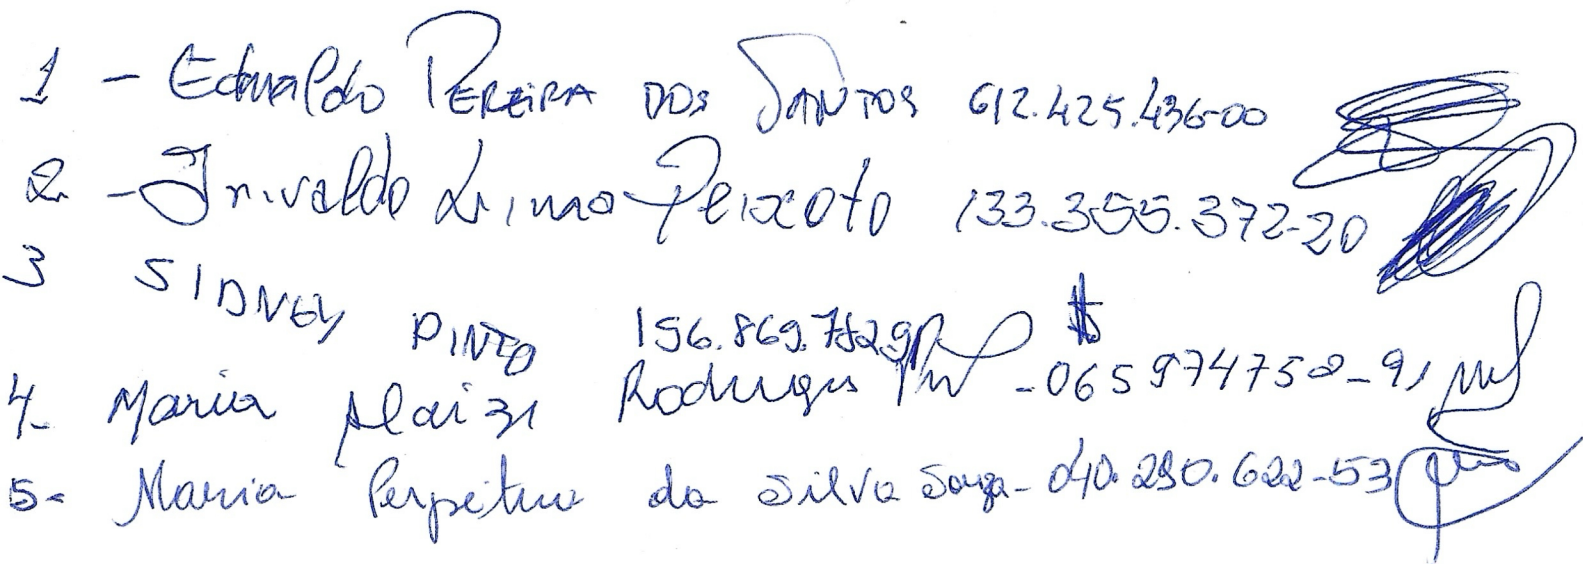 1 - Edvaldo PEREIRA DOS SANTOS 612.425.436-00
2. - Jrivaldo Lima Peixoto 133.355.372-20
3 SIDNEY PINTO 156.869.
4- Maria Alaizi Rodrigues - 0659747580-91
5- Maria Perpétua da Silva Souza - 040.290.622-53